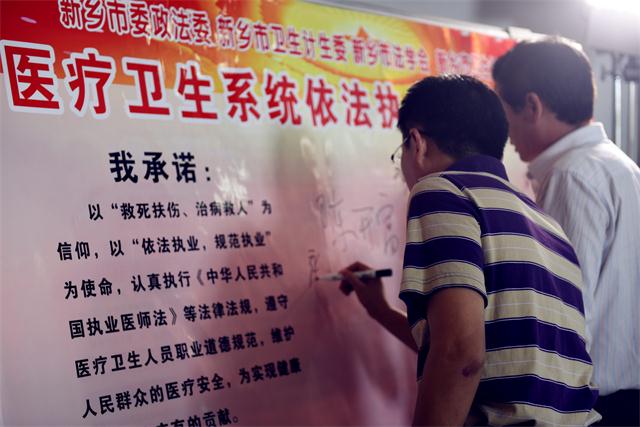 新乡市委政法委 新乡市卫生计生委 新乡市法学会 新乡市
医疗卫生系统依法执
我承诺：
以“救死扶伤、治病救人”为
信仰，以“依法执业，规范执业”
为使命，认真执行《中华人民共和
国执业医师法》等法律法规，遵守
医疗卫生人员职业道德规范，维护
人民群众的医疗安全，为实现健康
有的贡献。